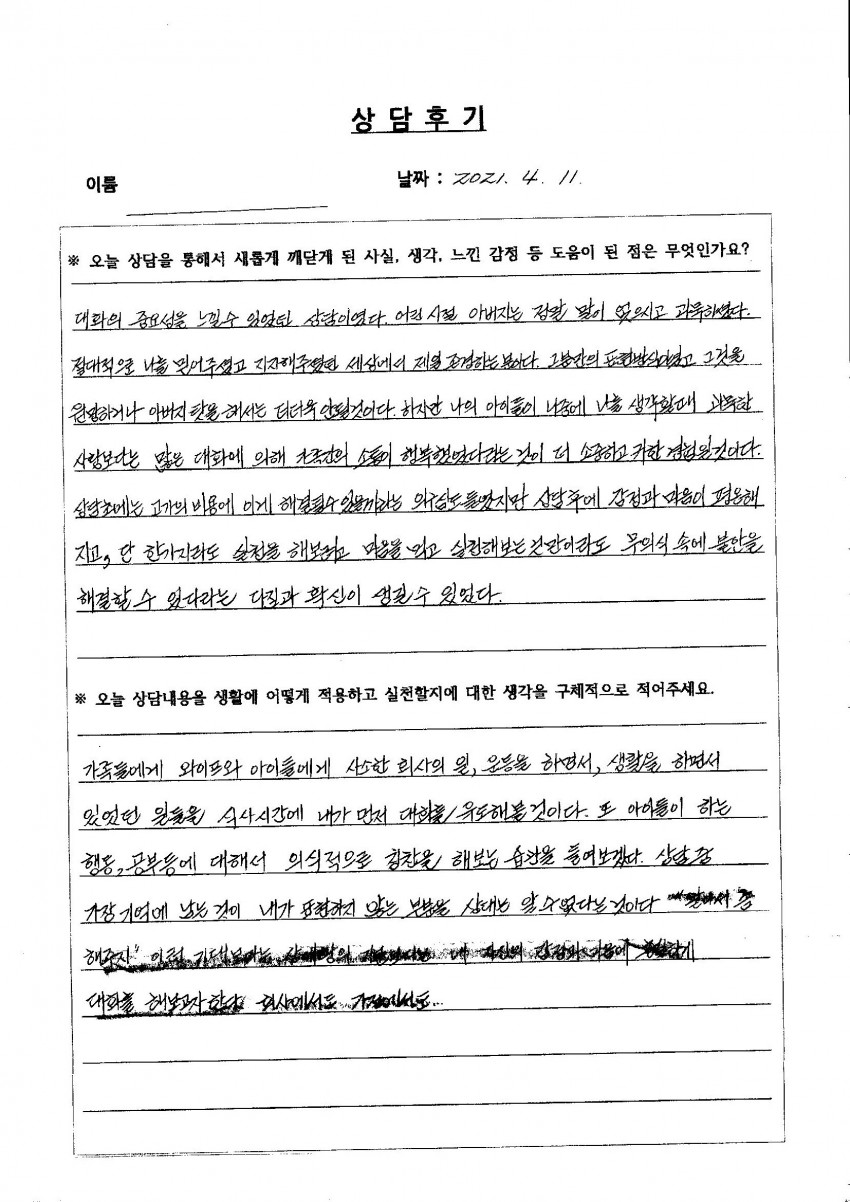 상 담 후 기
이름
날짜 : 2021. 4. 11.
※ 오늘 상담을 통해서 새롭게 깨닫게 된 사실, 생각, 느낀 감정 등 도움이 된 점은 무엇인가요?
대화의 중요성을 느낄수 있었던 상담이였다. 어린시절 아버지는 정말 말이 없으시고 과묵하셨다.
절대적으로 나를 믿어주셨고 지지해주셨던 세상에서 제일 존경하는 분이다. 그분만의 표현방식이였고 그것을
원망하거나 아버지 탓을 해서는 더더욱 안될것이다. 하지만 나의 아이들이 나중에 나를 생각할때 과묵한
사람보다는 많은 대화에 의해 가족간의 소통이 행복했었다라는 것이 더 소중하고 귀한 경험일것이다.
상담초에는 고가의 비용에 이게 해결될수 있을까라는 의구심도 들었지만 상담후에 감정과 마음이 평온해
지고, 단 한가지라도 실천을 해보려고 마음을 먹고 실천해보는것만이라도 무의식 속에 불안을
해결할 수 있다라는 다짐과 확신이 생길수 있었다.
※ 오늘 상담내용을 생활에 어떻게 적용하고 실천할지에 대한 생각을 구체적으로 적어주세요.
가족들에게 와이프와 아이들에게 사소한 회사의 일, 운동을 하면서, 생활을 하면서
있었던 일들을 식사시간에 내가 먼저 대화를 유도해볼 것이다. 또 아이들이 하는
행동, 공부등에 대해서 의식적으로 칭찬을 해보는 습관을 들여보겠다. 상담 중
가장 기억에 남는것이 내가 표현하지 않는 부분을 상대는 알 수 없다는 것이다 "알아서 좀
해주지" 이런 기대보다는 상대방의 내 자신의 감정과 마음에
대화를 해보고자 한다. 회사에서도 가정에서도...